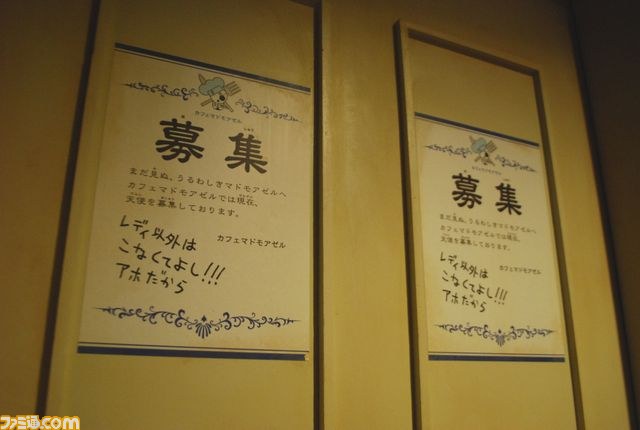 カフェマドモアゼル
募集
まだ見ぬ、うるわしきマドモアゼルへ
カフェマドモアゼルでは現在、
天使を募集しております。
カフェマドモアゼル
レディ以外は
こなくてよし!!!
アホだから
カフェマドモアゼル
募集
まだ見ぬ、うるわしきマドモアゼルへ
カフェマドモアゼルでは現在、
天使を募集しております。
カフェマドモアゼル
レディ以外は
こなくてよし!!!
アホだから
ファミ通.com